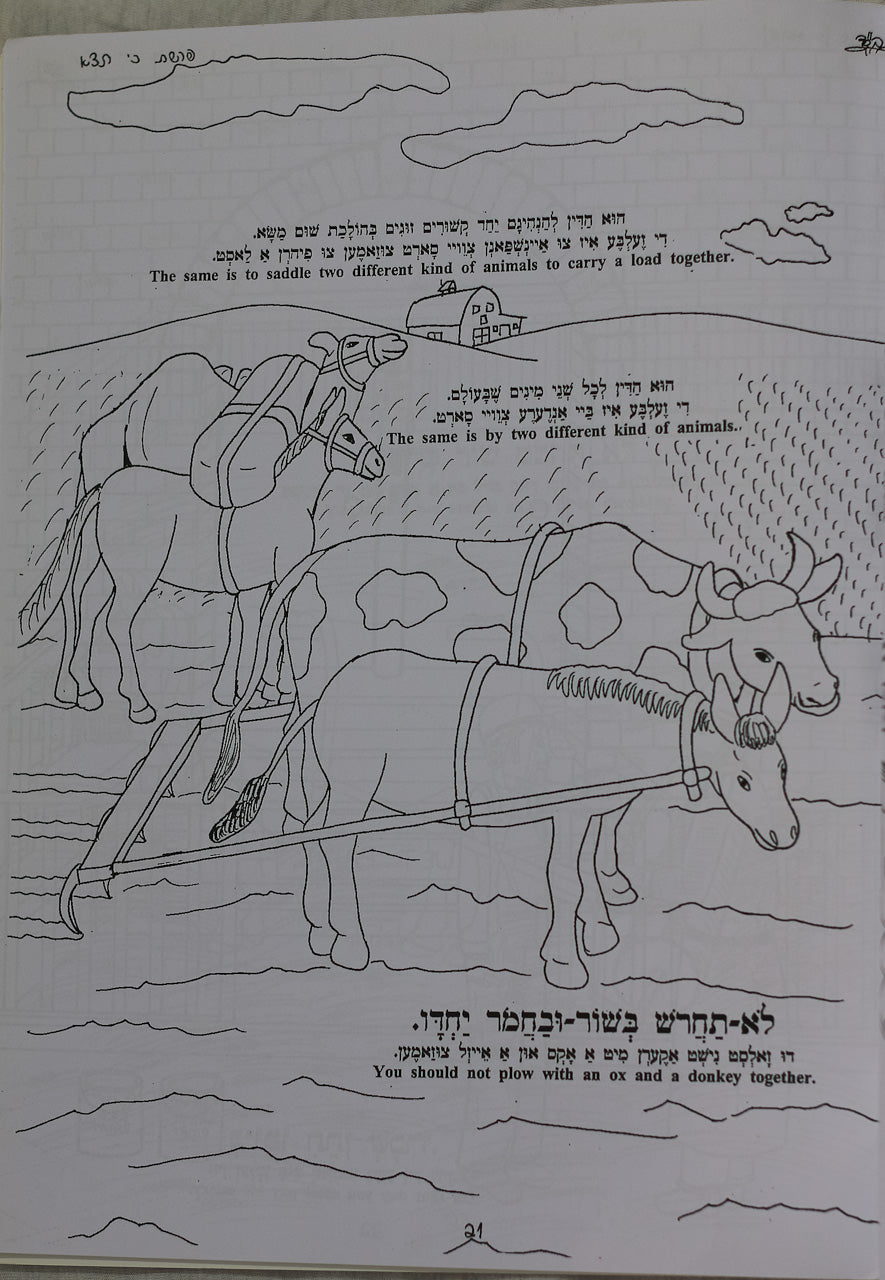 פרשת כי תצא
הוּא הַדִּין לְהַנְהִיגָם יַחַד קְשׁוּרִים זוּגִים בְּהוֹלָכַת שׁוּם מַשָּׂא.
די זֶעלְבֶּע אִיז צוּ אַיינְשְׁפַּאנְן צְווֵיי סָארְט צוּזַאמֶען צוּ פִירְן אַ לַאסְט.
The same is to saddle two different kind of animals to carry a load together.
הוּא הַדִּין לְכָל שְׁנֵי מִינִים שֶׁבָּעוֹלָם.
די זֶעלְבֶּע אִיז בַּיי אַנְדֶערֶע צְווֵיי סָארְט.
The same is by two different kind of animals.
לֹא-תַחֲרֹשׁ בְּשׁוֹר-וּבַחֲמֹר יַחְדָּו.
דוּ זָאלְסְט נִישְׁט אַקֶערְן מִיט אַ אָקְס אוּן אַ אֵייזְל צוּזַאמֶען.
You should not plow with an ox and a donkey together.
21